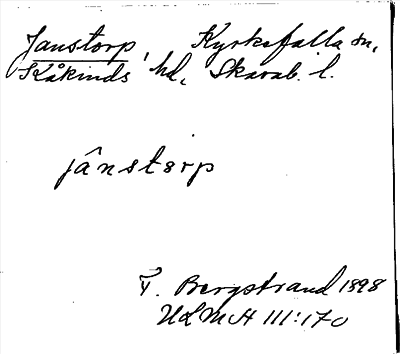 Janstorp, Kyrkefalla sn,
Kåkinds hd, Skarab. l.
jânstorp
T. Bergstrand 1898
ULMA 111:170